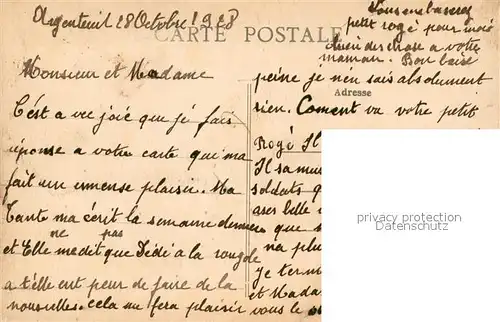 Argenteuil 28 Octobre 1928
CARTE POSTALE
petit rogé pour moi
bien des chose a votre
maman. Bon baisé
Monsieur et Madame
C'ést a vec joié que je fais
réponse a votre carte qui ma
fait un immense plaisir. Ma
Tante ma écrit la semaine derniere
ne pas
et Elle me dit que Dédé a la rougole
a t'élle eut peur de faire de la
nouvelles. cela me fera plaisir
peine je n'en sais absolument
Adresse
rien. Coment va votre petit
Rogé Il
Il s'amu
soldats q
asér belle
que
na plu
Je term
et Mada
vous le
privacy protection
Datenschutz